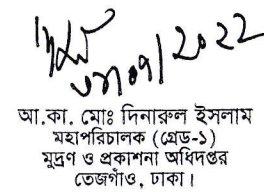 ২০২২
আ.কা. মোঃ দিনারুল ইসলাম
মহাপরিচালক (গ্রেড-১)
মুদ্রণ ও প্রকাশনা অধিদপ্তর
তেজগাঁও, ঢাকা।